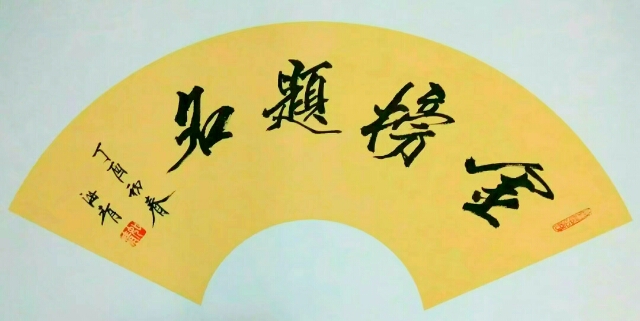 金榜題名
丁酉初春
海青